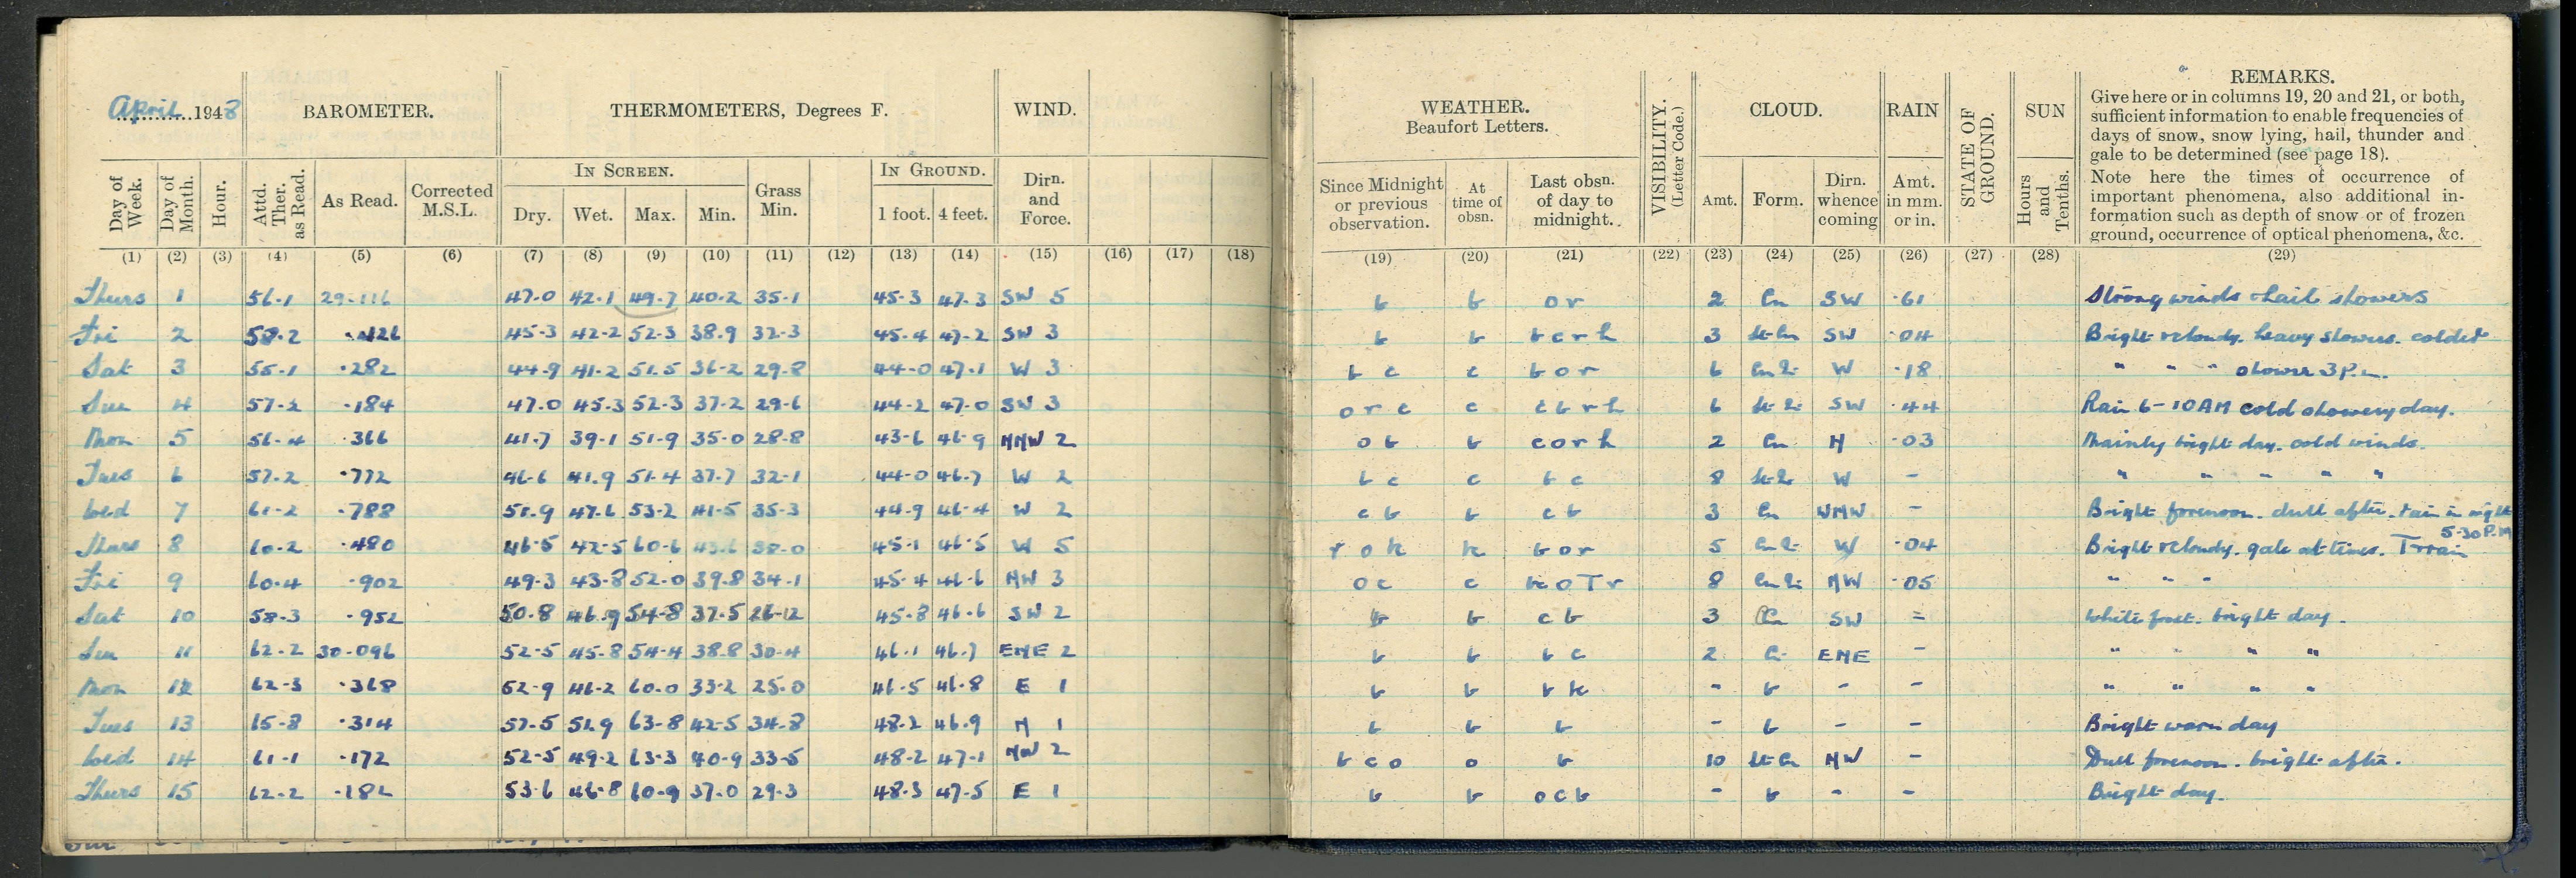 April 1948 BAROMETER. THERMOMETERS, Degrees F. WIND.
IN SCREEN. IN GROUND.
Day of Week. Day of Month. Hour. Attd. Ther. as Read. As Read. Corrected M.S.L. Dry. Wet. Max. Min. Grass Min. 1 foot. 4 feet. Dirn. and Force.
(1) (2) (3) (4) (5) (6) (7) (8) (9) (10) (11) (12) (13) (14) (15) (16) (17) (18)
Thurs 1 56.1 29.116 47.0 42.1 49.7 40.2 35.1 45.3 47.3 SW 5
Fri 2 58.2 .426 45.3 42.2 52.3 38.9 32.3 45.4 47.2 SW 3
Sat 3 55.1 .282 44.9 41.2 51.5 36.2 29.8 44.0 47.1 W 3
Sun 4 57.2 .184 47.0 45.3 52.3 37.2 29.6 44.2 47.0 SW 3
Mon 5 56.4 .366 41.7 39.1 51.9 35.0 28.8 43.6 46.9 NNW 2
Tues 6 57.2 .772 46.6 41.9 51.4 37.7 32.1 44.0 46.7 W 2
Wed 7 61.2 .788 51.9 47.6 53.2 41.5 35.3 44.9 46.4 W 2
Thurs 8 60.2 .480 46.5 42.5 60.6 43.6 38.0 45.1 46.5 W 5
Fri 9 60.4 .902 49.3 43.8 52.0 39.8 34.1 45.4 46.6 NW 3
Sat 10 58.3 .952 50.8 46.9 54.8 37.5 26.12 45.8 46.6 SW 2
Sun 11 62.2 30.096 52.5 45.8 54.4 38.8 30.4 46.1 46.7 ENE 2
Mon 12 62.3 .368 52.9 46.2 60.0 33.2 25.0 46.5 46.8 E 1
Tues 13 65.8 .314 57.5 51.9 63.8 42.5 34.8 48.2 46.9 N 1
Wed 14 61.1 .172 52.5 49.2 63.3 40.9 33.5 48.2 47.1 NW 2
Thurs 15 62.2 .182 53.6 46.8 60.9 37.0 29.3 48.3 47.5 E 1
WEATHER. Beaufort Letters. VISIBILITY. (Letter Code.) CLOUD. RAIN STATE OF GROUND. SUN REMARKS.
Give here or in columns 19, 20 and 21, or both,
sufficient information to enable frequencies of
days of snow, snow lying, hail, thunder and
gale to be determined (see page 18).
Note here the times of occurrence of
important phenomena, also additional in-
formation such as depth of snow or of frozen
ground, occurrence of optical phenomena, &c.
Since Midnight or previous observation. At time of obsn. Last obsn. of day to midnight. Amt. Form. Dirn. whence coming Amt. in mm. or in. Hours and Tenths.
(19) (20) (21) (22) (23) (24) (25) (26) (27) (28) (29)
b b or 2 Cu SW .61 Strong winds & hail showers
b b bcrh 3 St-Cu SW .04 Bright & cloudy. heavy showers. colder
b c c b o r 6 W .18 " " " shower 3 P.m.
o r c c c b r h 6 SW .44 Rain 6-10 AM cold showery day.
o b b c o r h 2 Cu N .03 Mainly bright day. cold winds.
b c c b c 8 W - " " " " "
c b b c b 3 Cu WNW - Bright forenoon. dull after. rain in night
r o k k b o r 5 W .04 Bright & cloudy. gale at times. T rain 5-30 P.M
o c c o T r 8 NW .05 " " "
b b c b 3 Cu SW = White frost. bright day.
b b b c 2 ENE - " " " "
b b b k - b - - " " " "
b b b - b - - Bright warm day
b c o o b 10 St-Cu NW - Dull forenoon. bright after.
b b o c b - b - - Bright day.